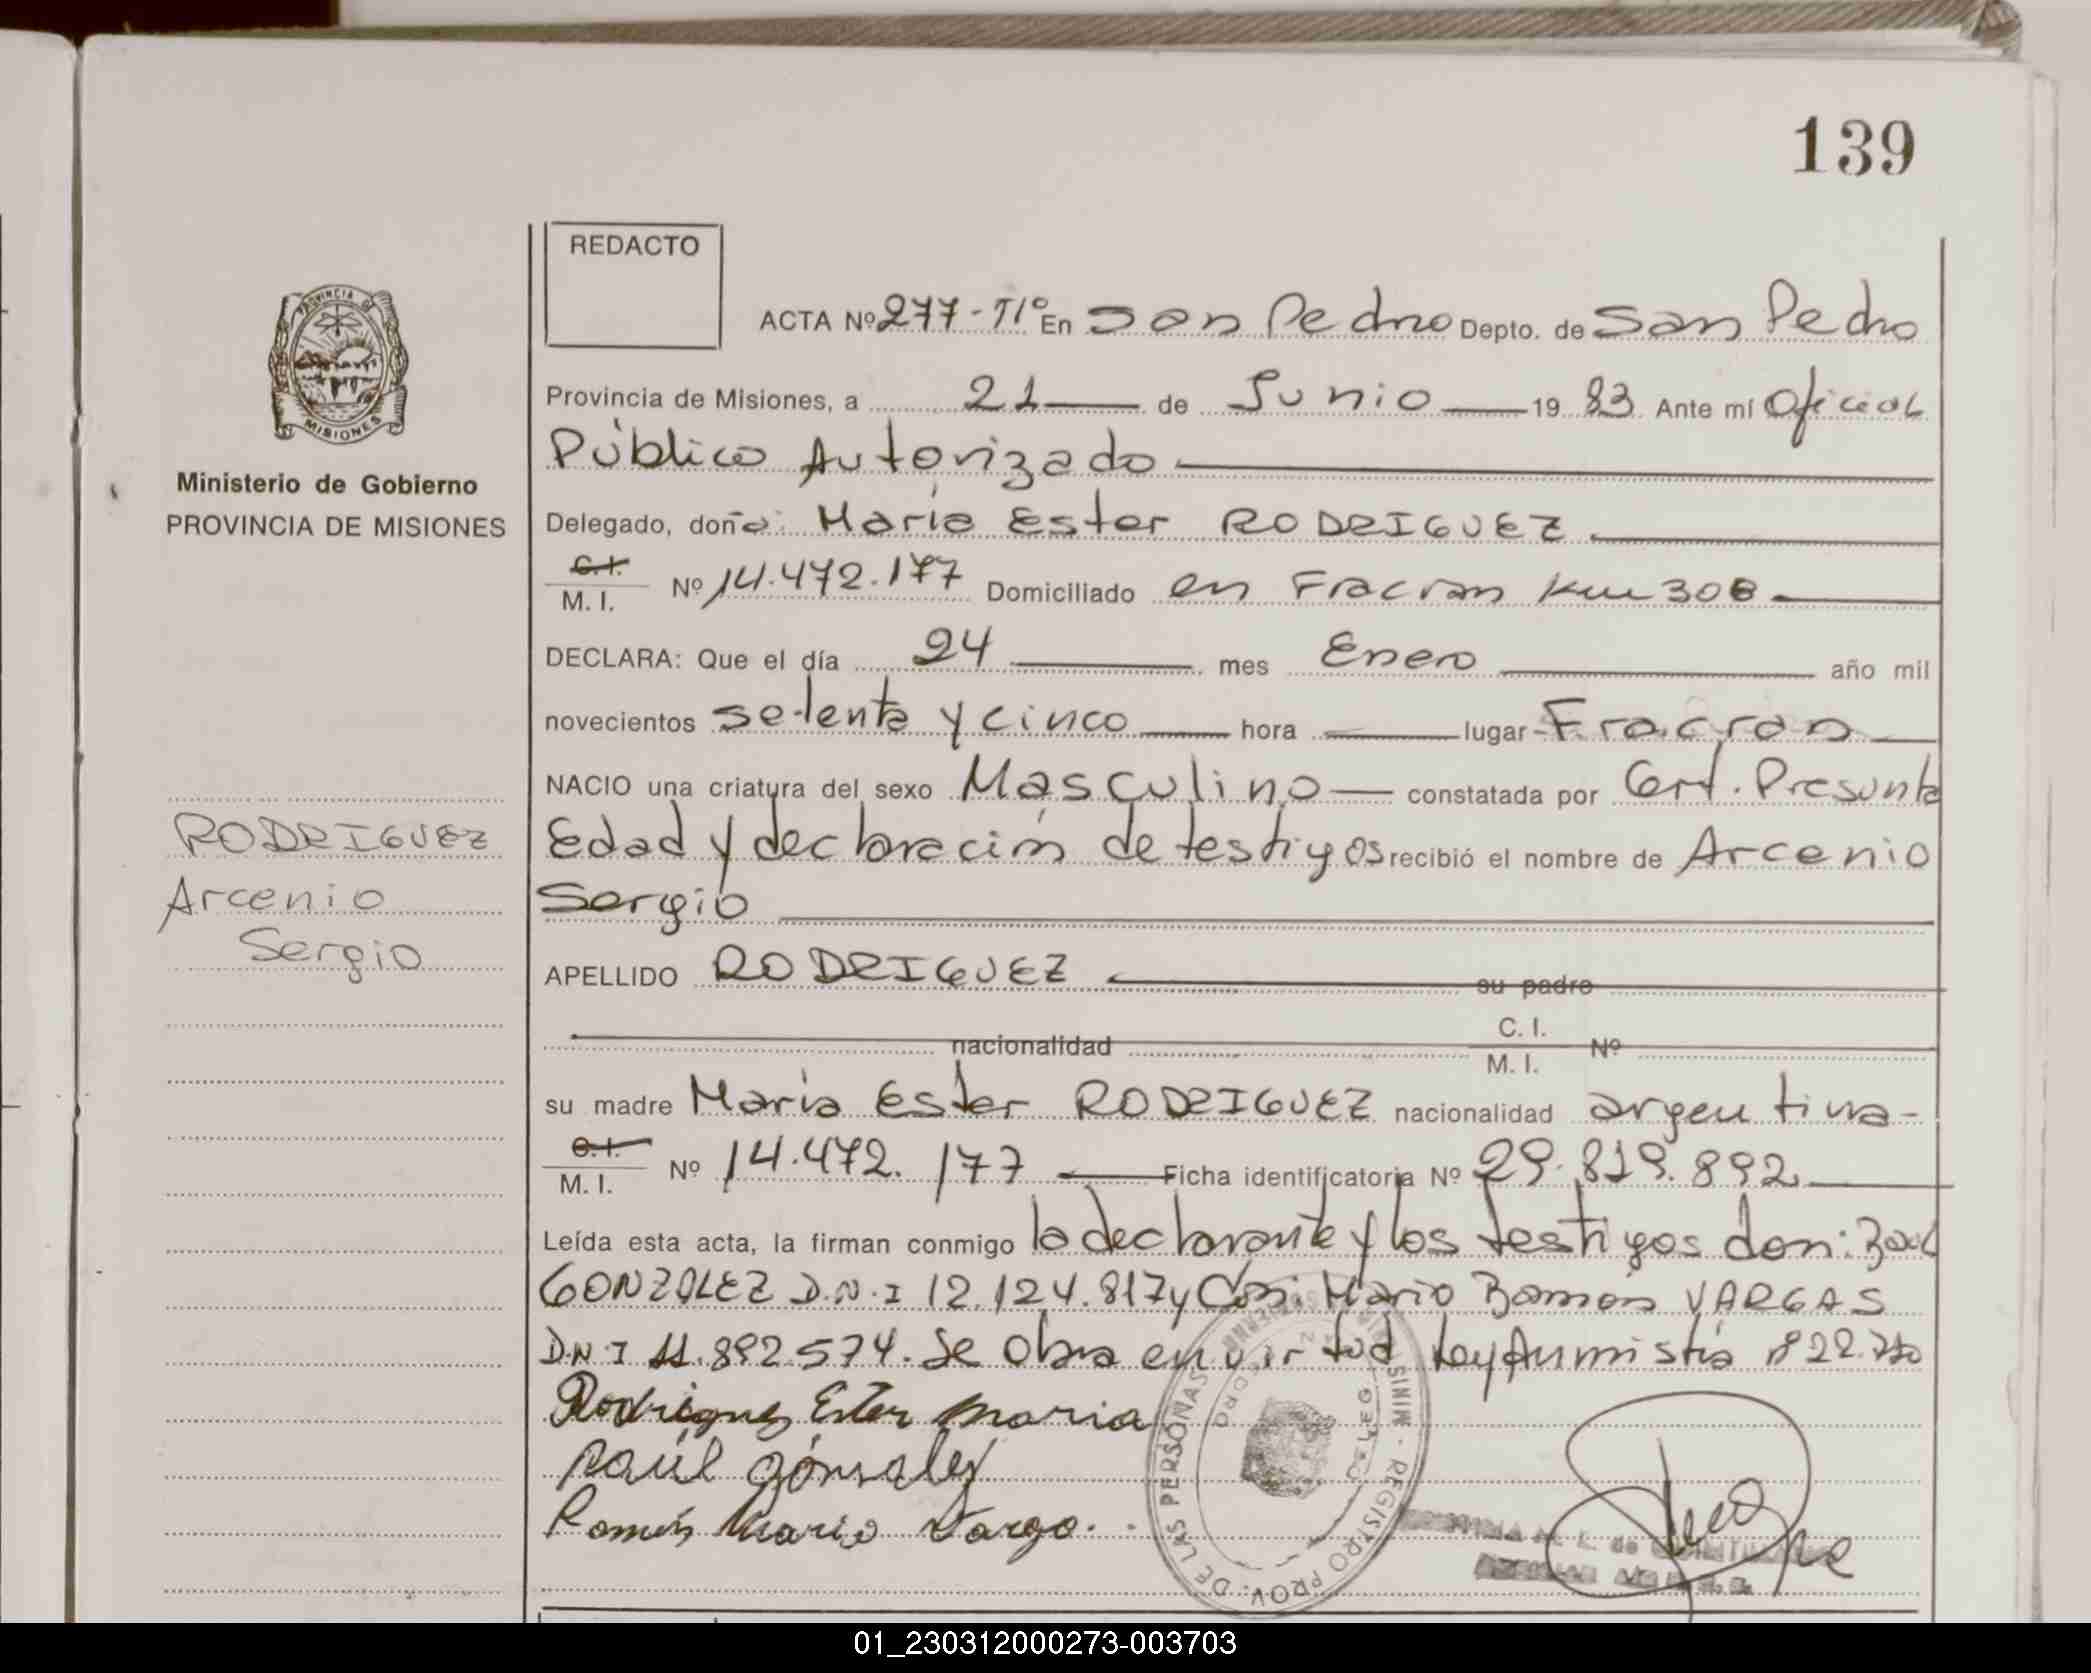 139
REDACTO
ACTA Nº 277-TIº En San Pedro Depto. de San Pedro
Provincia de Misiones, a 21 de Junio 1983 Ante mí Oficial
Público Autorizado
Delegado, doña: María Ester RODRIGUEZ
C.I. M. I. Nº 14.472.177 Domiciliado en Fracran Km 308
DECLARA: Que el día 24 mes Enero año mil
novecientos setenta y cinco hora lugar Fracran
NACIO una criatura del sexo Masculino constatada por Cert. Presunta
Edad y declaración de testigos recibió el nombre de Arcenio
Sergio
APELLIDO RODRIGUEZ su padre
nacionalidad C. I. M. I. Nº
su madre María Ester RODRIGUEZ nacionalidad argentina-
C.I. M. I. Nº 14.472.177 Ficha identificatoria Nº 29.819.892
Leída esta acta, la firman conmigo la declarante y los testigos don: Raul
GONZALEZ D.N.I 12.124.817 y Don: Mario Ramón VARGAS
D.N.I 11.892.574. Se Obra en virtud Ley Amnistía
Rodriguez Ester Maria
Raúl Gónsalez
Román Mario Vargo.
PROVINCIA DE MISIONES
Ministerio de Gobierno
PROVINCIA DE MISIONES
RODRIGUEZ
Arcenio
Sergio
REGISTRO PROV. DE LAS PERSONAS
01_230312000273-003703